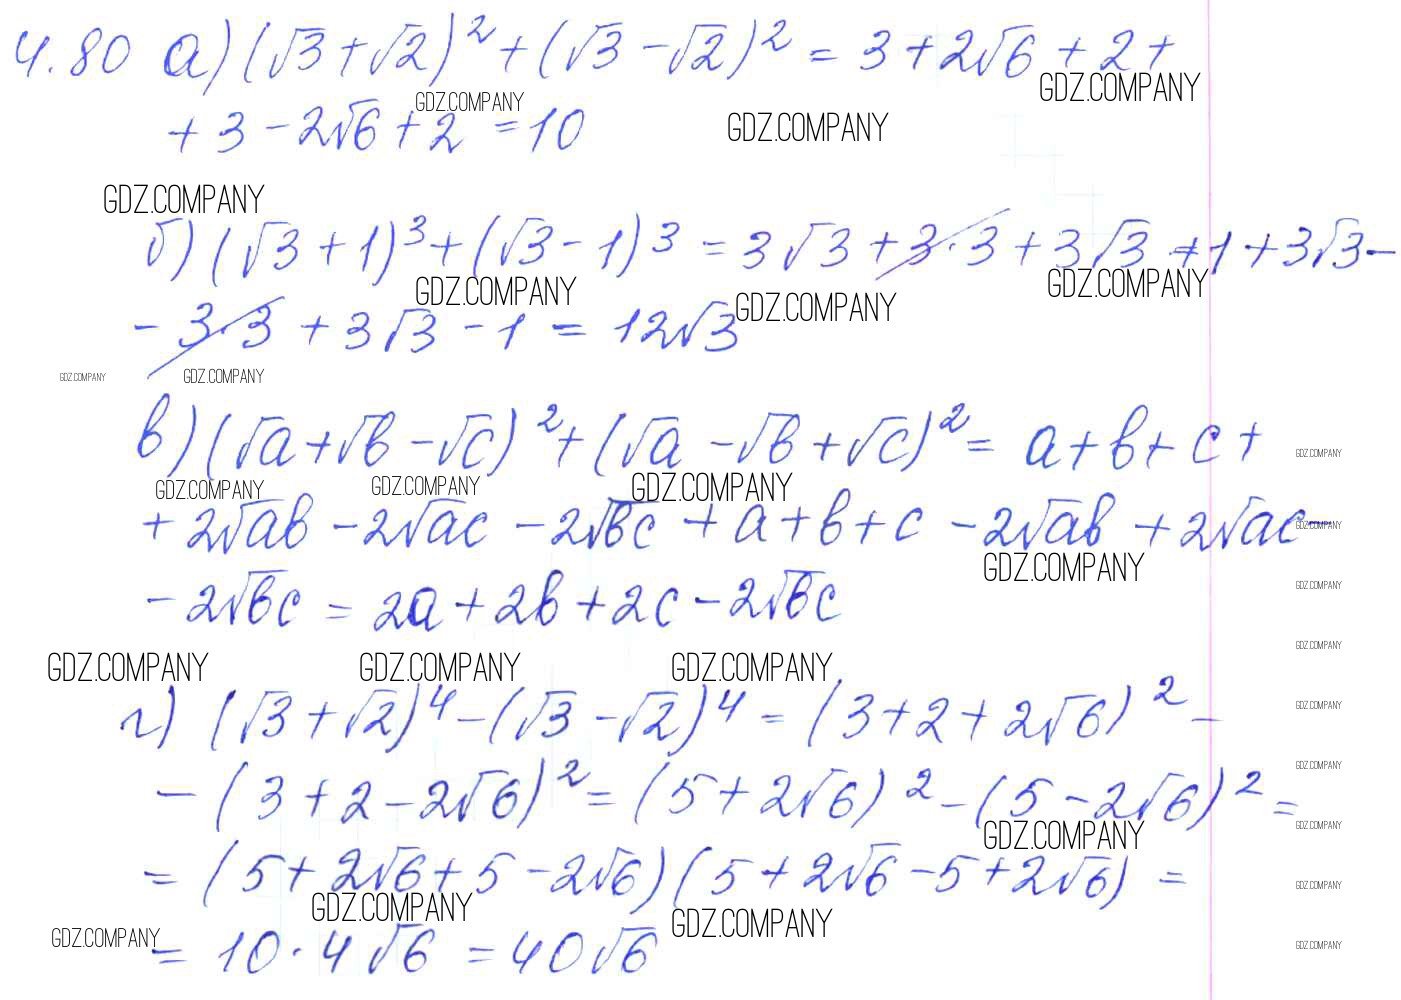 4.80 а) (√3 + √2)² + (√3 - √2)² = 3 + 2√6 + 2 +
GDZ.COMPANY
GDZ.COMPANY
+ 3 - 2√6 + 2 = 10
GDZ.COMPANY
GDZ.COMPANY
б) (√3 + 1)³ + (√3 - 1)³ = 3√3 + 3·3 + 3√3 + 1 + 3√3 -
GDZ.COMPANY
GDZ.COMPANY
GDZ.COMPANY
- 3·3 + 3√3 - 1 = 12√3
GDZ.COMPANY
GDZ.COMPANY
в) (√a + √b - √c)² + (√a - √b + √c)² = a + b + c +
GDZ.COMPANY
GDZ.COMPANY
GDZ.COMPANY
GDZ.COMPANY
+ 2√ab - 2√ac - 2√bc + a + b + c - 2√ab + 2√ac -
GDZ.COMPANY
GDZ.COMPANY
- 2√bc = 2a + 2b + 2c - 2√bc
GDZ.COMPANY
GDZ.COMPANY
GDZ.COMPANY
GDZ.COMPANY
GDZ.COMPANY
г) (√3 + √2)⁴ - (√3 - √2)⁴ = (3 + 2 + 2√6)² -
GDZ.COMPANY
GDZ.COMPANY
- (3 + 2 - 2√6)² = (5 + 2√6)² - (5 - 2√6)² =
GDZ.COMPANY
GDZ.COMPANY
= (5 + 2√6 + 5 - 2√6)(5 + 2√6 - 5 + 2√6) =
GDZ.COMPANY
GDZ.COMPANY
GDZ.COMPANY
GDZ.COMPANY
= 10·4√6 = 40√6
GDZ.COMPANY